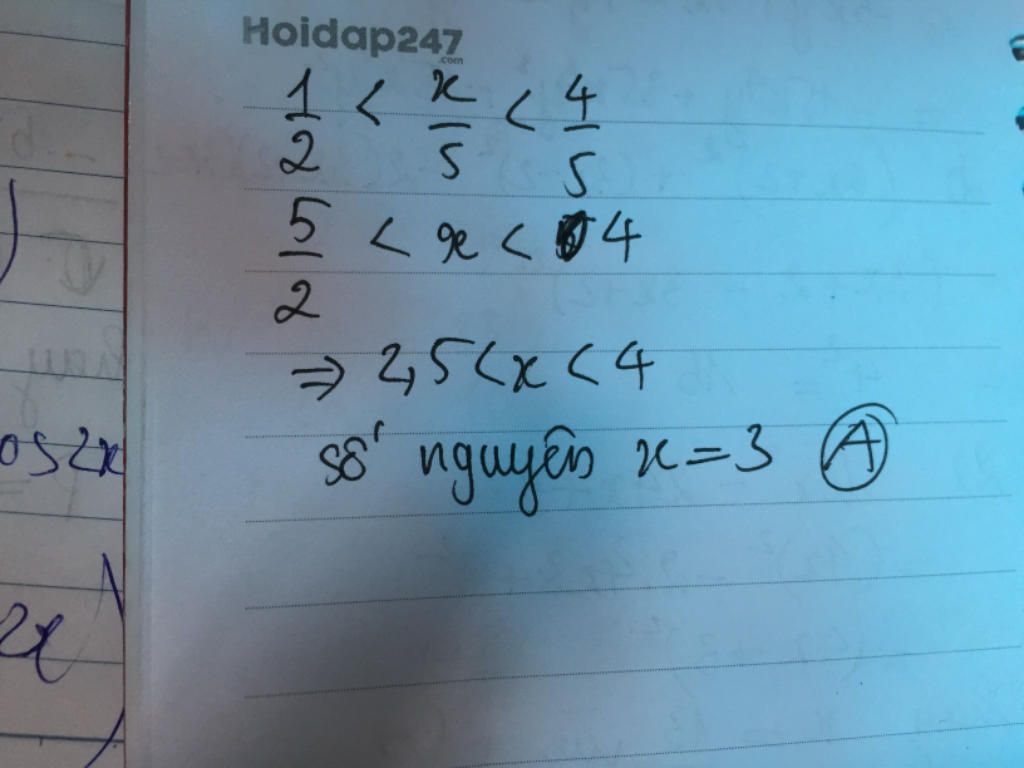 Hoidap247
.com
1/2 < x/5 < 4/5
5/2 < x < 4
⇒ 2,5 < x < 4
số nguyên x = 3 Ⓐ
os2x
2x